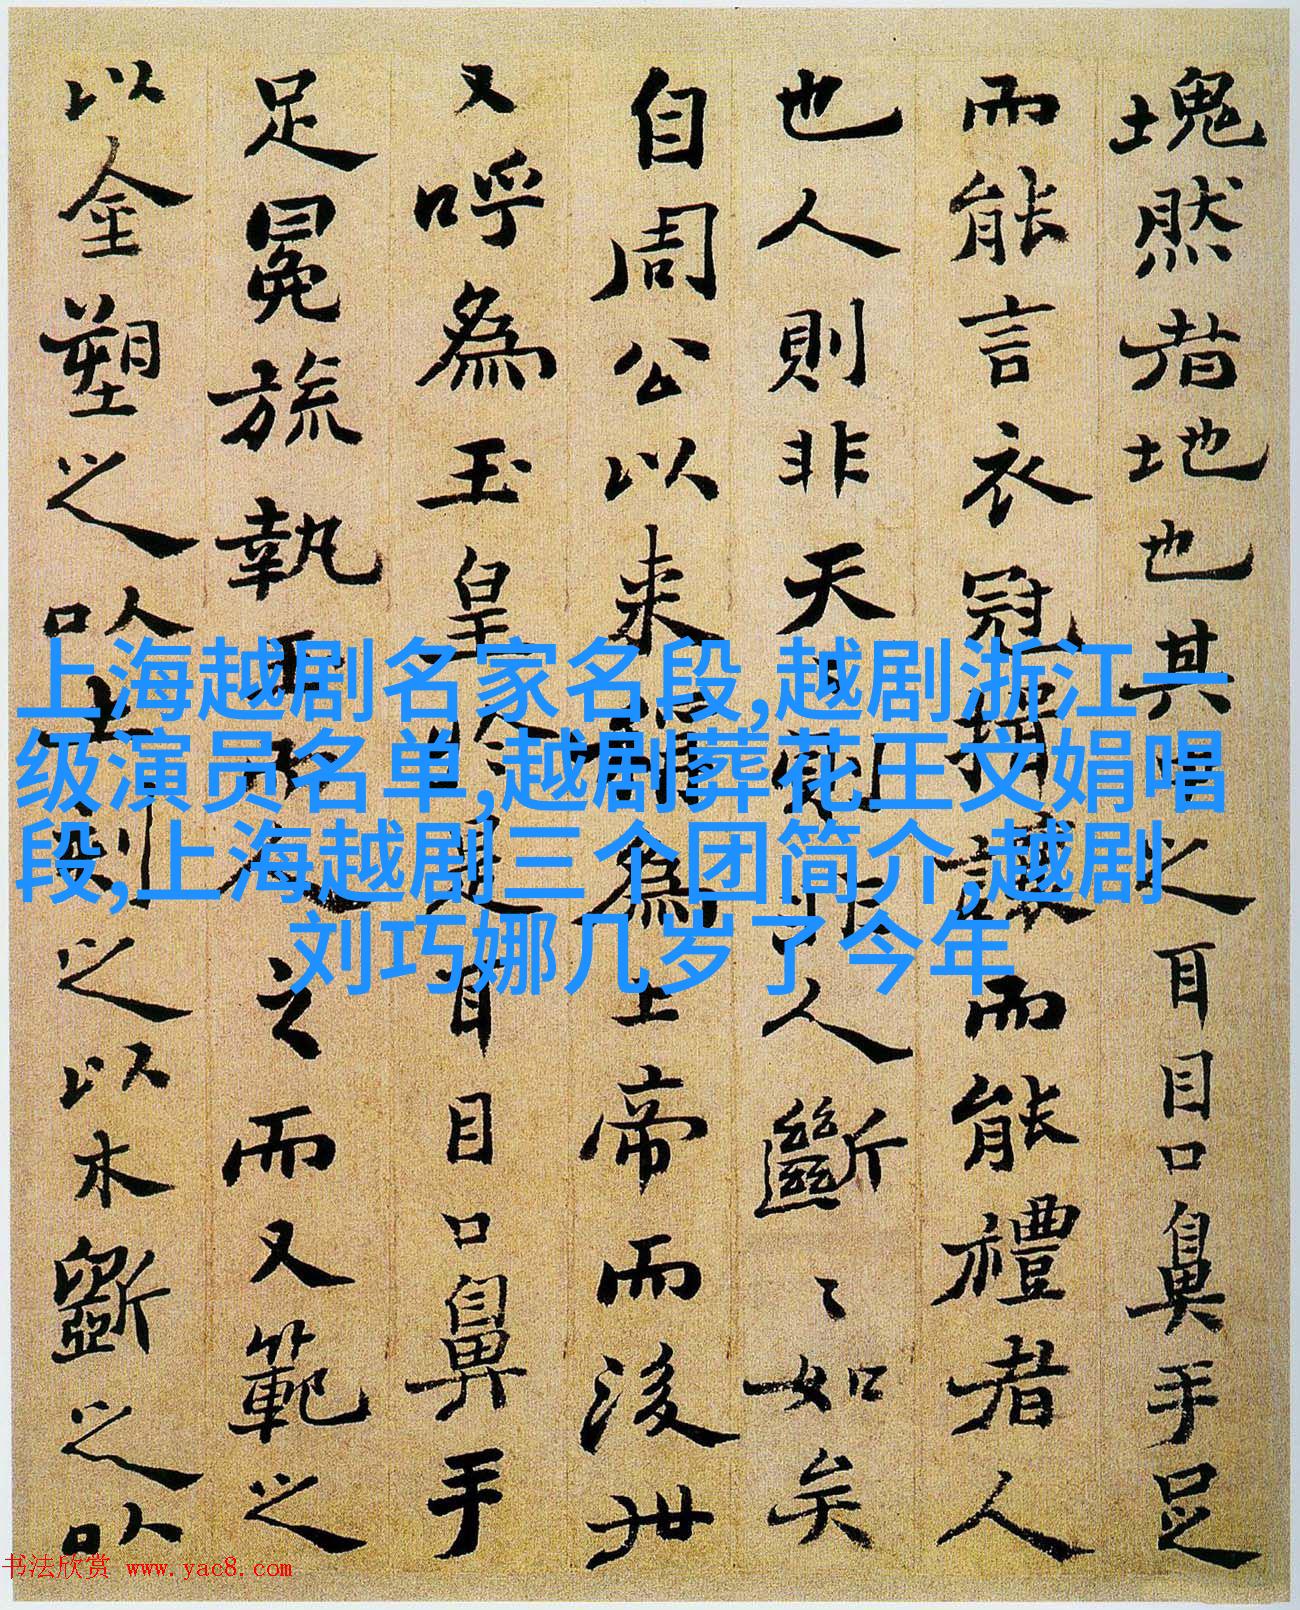 塊然者地也其唱之耳目口鼻手足
而能言衣冠揖讓而能禮者人
也人則非天天則非人斷〻如矣
自周公以来謂為上帝而後世
又呼為玉皇是耳目口鼻手
足冕旒執玉而之而又範之
以金塑之以土刻之以木斲之以
上海越剧名家名段,越剧浙江一
级演员名单,越剧葬花王文娟唱
段,上海越剧三个团简介,越剧
刘巧娜几岁了今年
书法欣赏 www.yac8.com